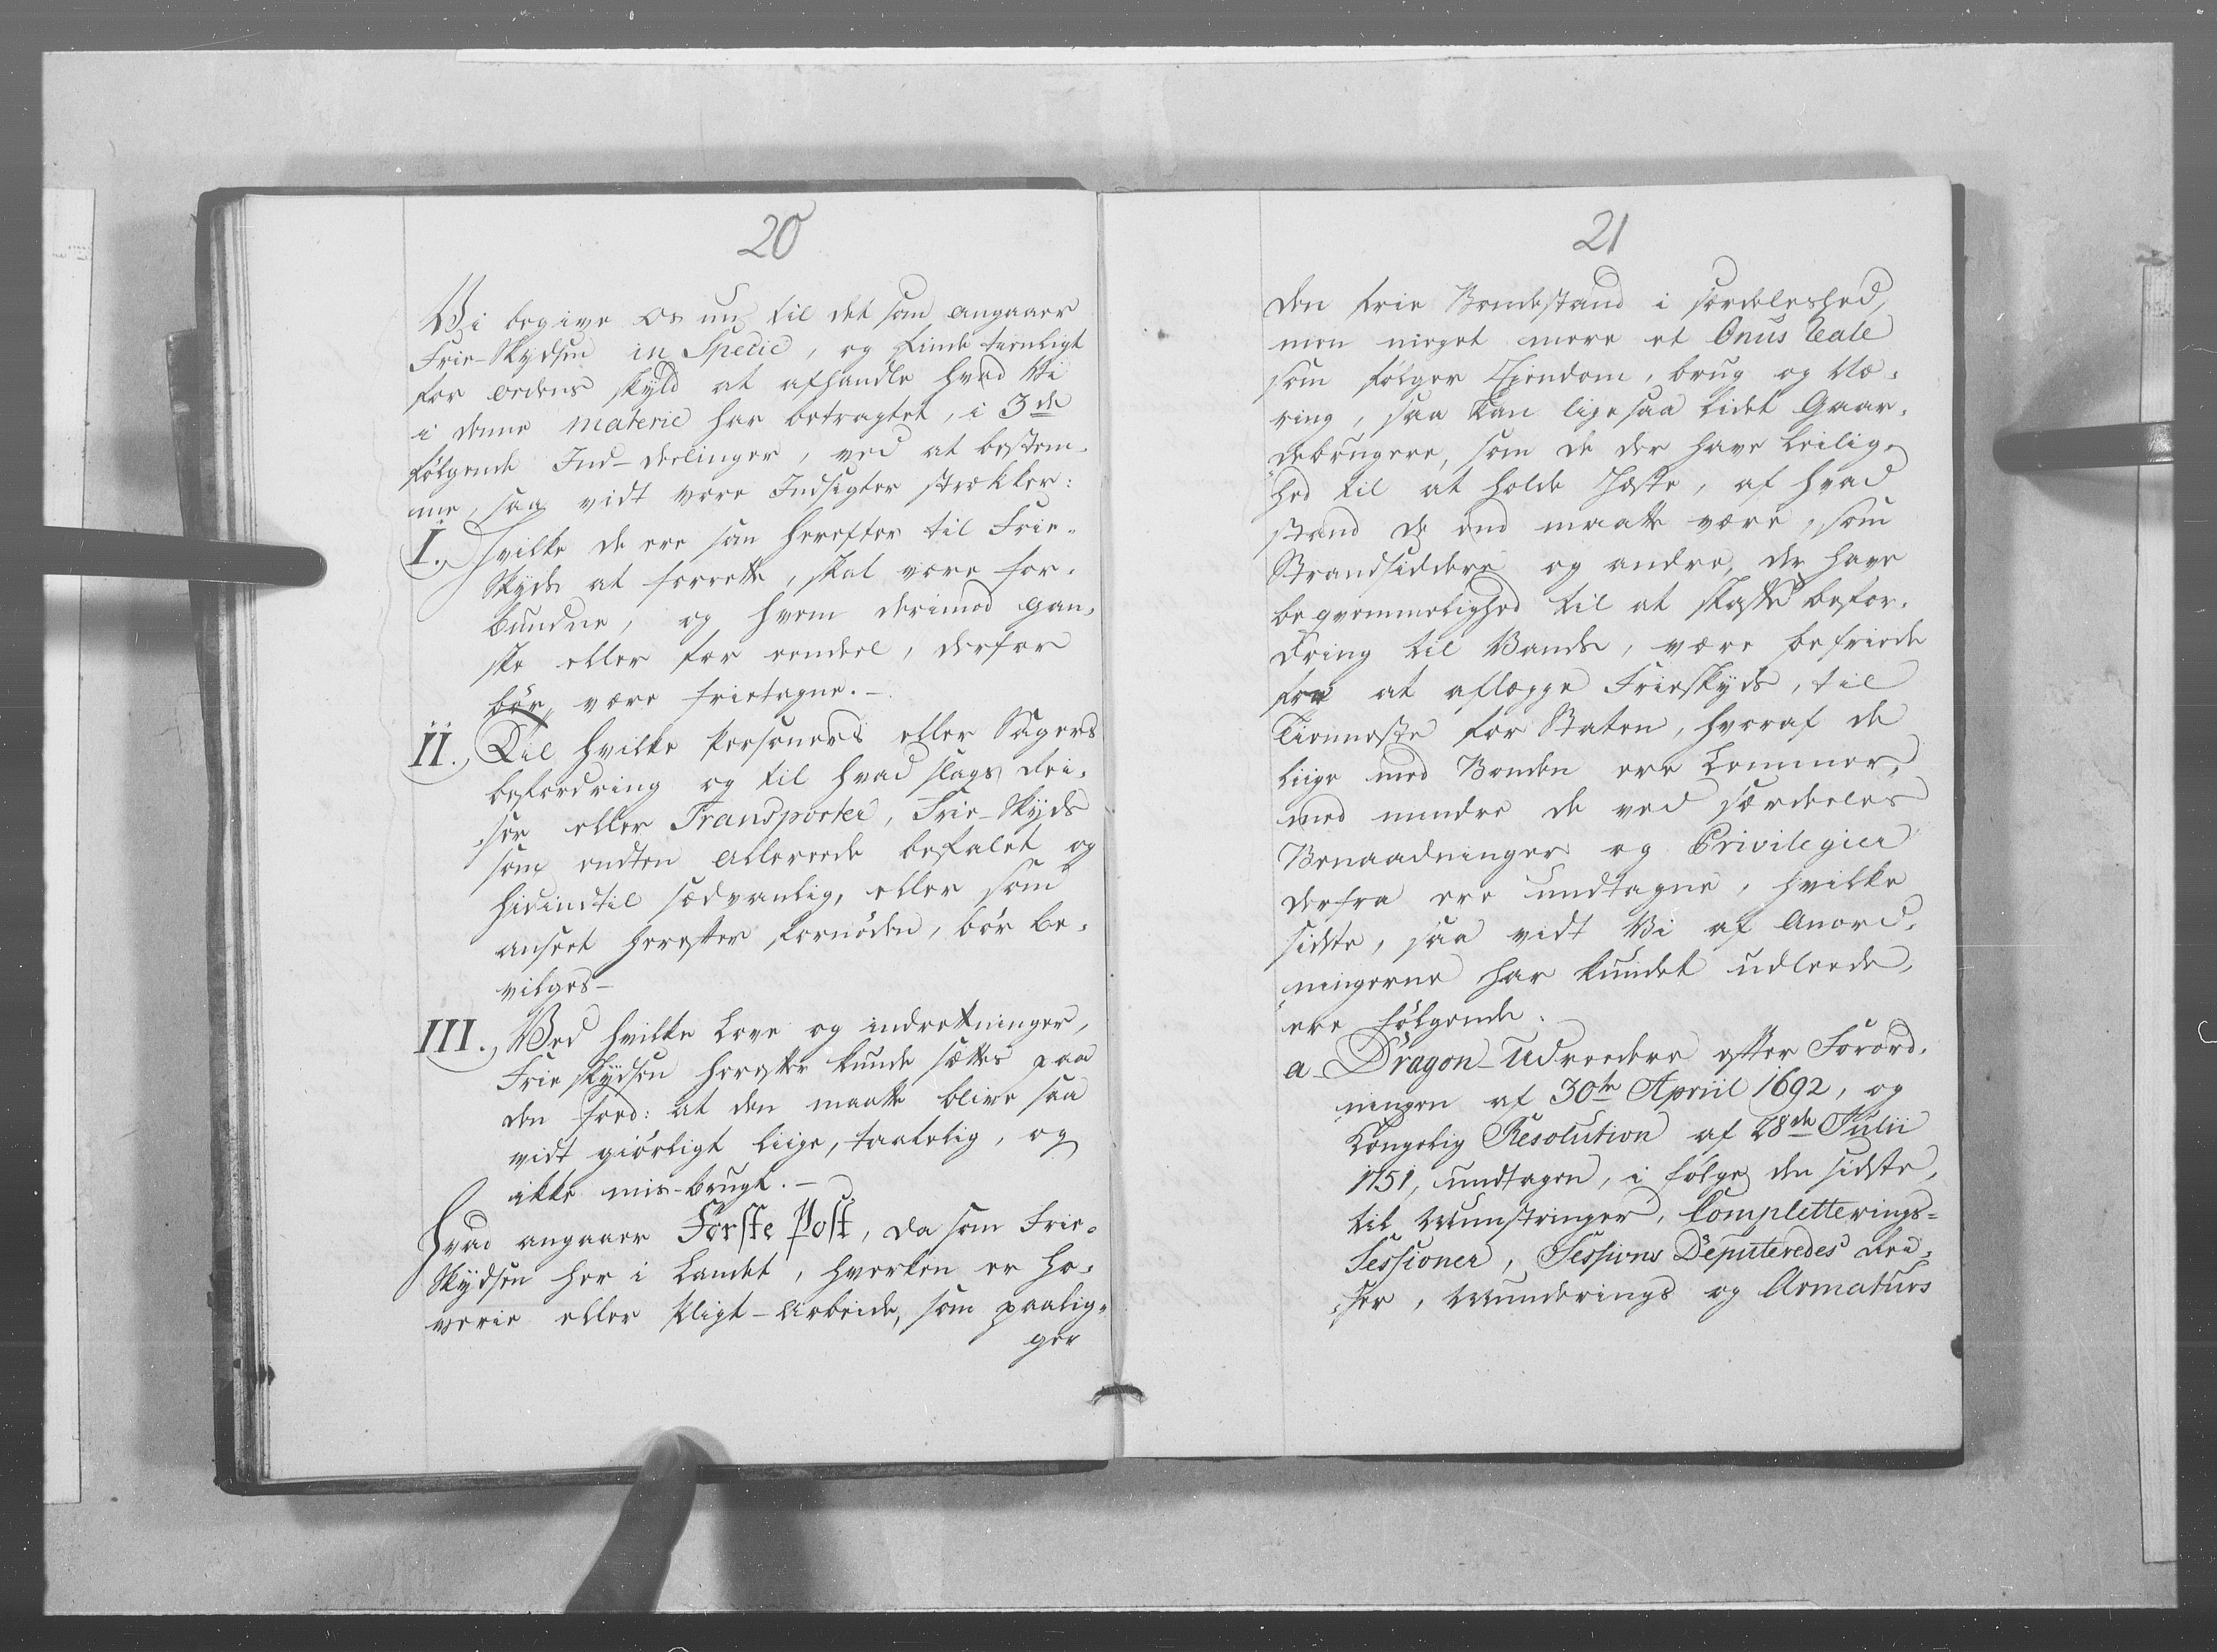 20
Vi begive os nu til det som angaaer
Frie-Skydsen in Specie, og finde tienligt
for ordens skyld at afhandle hvad Vi
i denne materie har betragtet, i 3de
følgende Ind-deelinger, ved at bestem-
me, saa vidt vore Indsigter strekker:
I. Hvilke de ere som herefter til Frie-
Skyds at forrette, skal være for-
bundne, og hvem derimod gan-
ske eller for eendeel, derfor
bør være frietagne.-
II. Til hvilke Personers eller Sagers
befordring og til hvad slags Rei-
ser eller Transporter, Frie-Skyds
som endten allereede befalet og
hidindtil sædvanlig, eller som
anseet herefter fornøden, bør be-
vilges-
III. Ved hvilke Love og indretninger,
Frie skydsen herefter kunde sættes paa
den foed: at den maatte blive saa
vidt giørligt liige, taalelig, og
ikke mis-brugt.-
Hvad angaaer Første Post, da som Frie-
Skydsen her i Landet, hverken er Ho-
verie eller Pligt-Arbeide, som paalig-
ger
21
den frie Bondestand i særdeleshed,
men meget meere et Onus reale
som følger Eiendom, brug og Næ-
ring, saa kan lige saa lidet Gaar-
debrugere, som de der have Leilig-
hed til at holde Hæste, af hvad
stand de end maatte være, som
Strandsiddere og andre, der have
beqvemmelighed til at skaffe befor-
dring til Vands, være befriede
for at aflægge Frieskyds, til
Tienneste for Staten, hvoraf de
liige med Bonden ere Lemmer,
med mindre de ved særdeeles
Benaadninger og Privilegier
derfra ere undtagne, hvilke
sidste, saa vidt Vi af Anord-
ningerne har kundet udleede,
ere følgende:
a. Dragon-Udreedere efter Forord-
ningen af 30te Apriil 1692, og
Kongelig Resolution af 28de Julii
1751, undtagen, i følge den sidste,
til Munstringer, Completterings-
Sessioner, Sessions Deputeredes Rei-
ser, Munderings og Armaturs